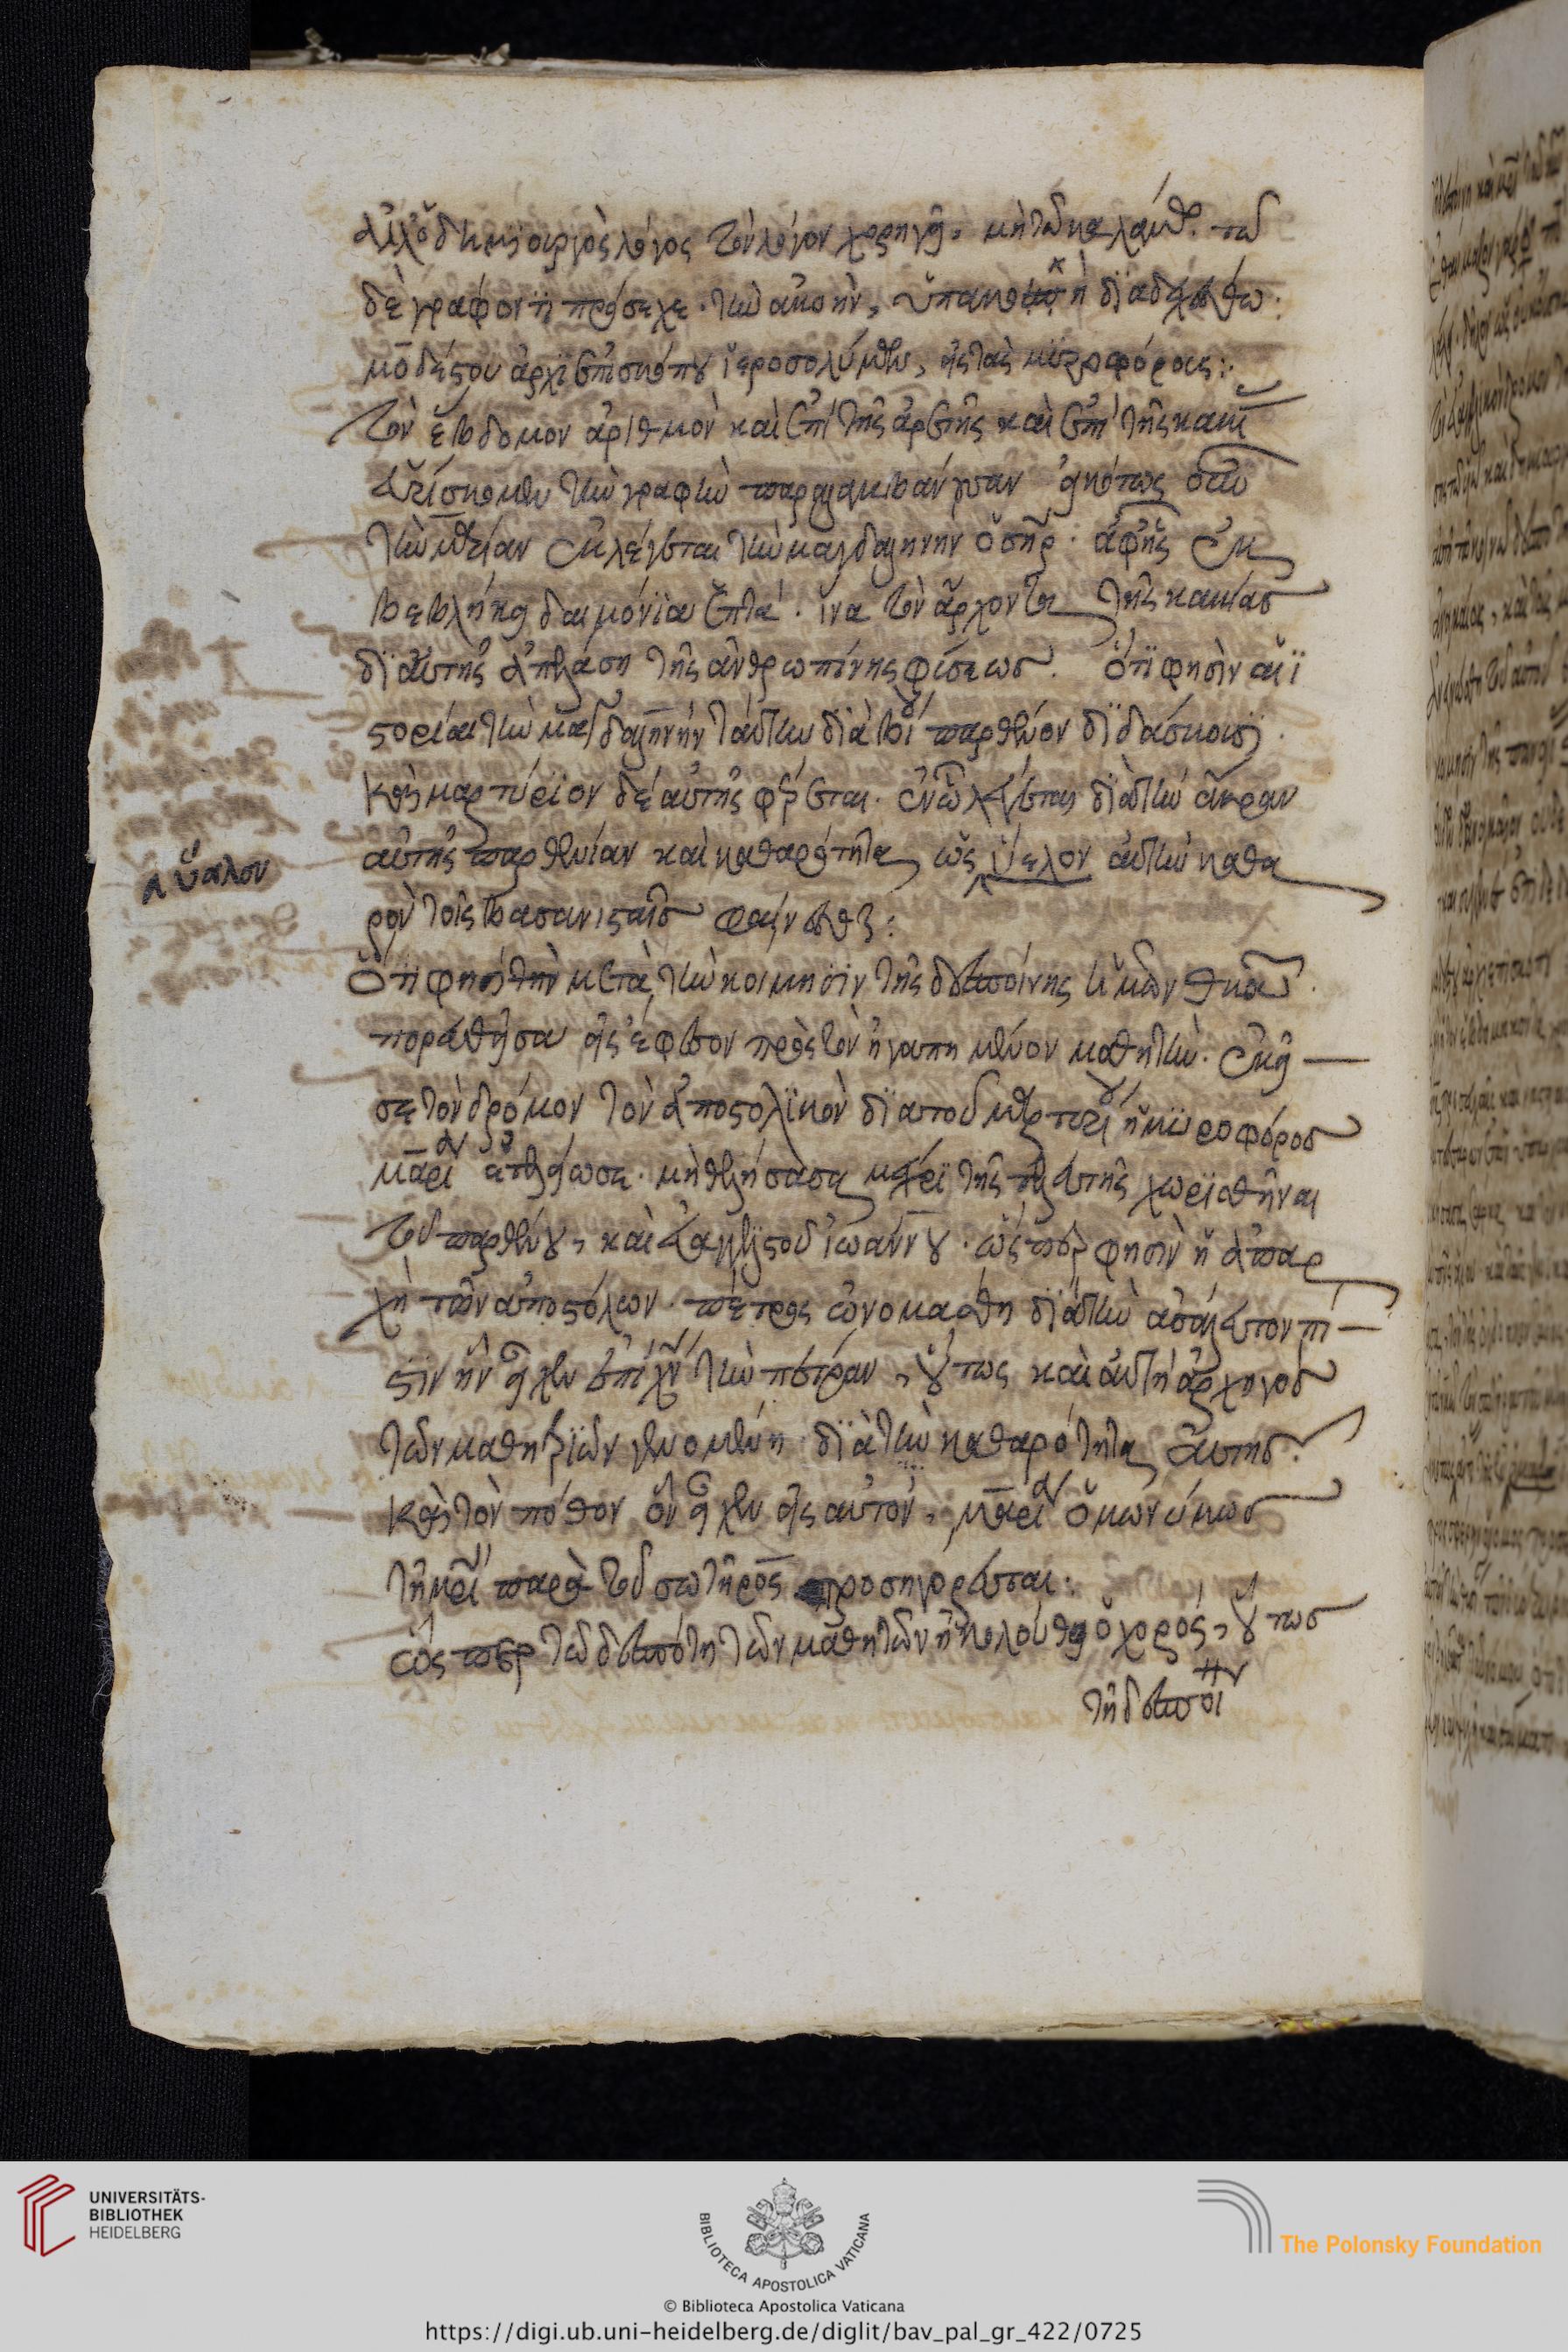 δὲ γράφοντι πρόσεχε τὴν ἀκοήν, ὑπανοίχθη διαδεχέσθω.
μοδέστου ἀρχιεπισκόπου ἱεροσολύμων, εἰς τὰς μυροφόρους:
Τὸν ἕβδομον ἀριθμὸν καὶ ἐπὶ τῆς ἀρετῆς καὶ ἐπὶ τῆς κακί
εὑρίσκομεν τὴν γραφὴν παραλαμβάνουσαν εἰκότως οὖν
τὴν μαρίαν ἐκλέγεται τὴν μαγδαληνὴν ὁ σηρ· ἀφ' ἧς ἐκ
βεβλήκει δαιμόνια ἑπτά· ἵνα τὸν ἄρχοντα τῆς κακίας
δι' αὐτῆς ἀπελάση τῆς ἀνθρωπίνης φύσεως. Ὅτι φησὶν αἱ ἱ
στορίαι τὴν μαγδαληνὴν ταύτην διὰ βίου παρθένον διδάσκουσι.
καὶ μαρτύριον δὲ αὐτῆς φέρεται. ἐν ὧ λέγεται διὰ τὴν ἄκραν
αὐτῆς παρθενίαν καὶ καθαρότητα, ὡς ὕελον αὐτὴν καθα
ὕαλον
ρὸν τοῖς βασανισταῖς φαίνεσθαι:
Ὅτι φησὶ τὴν μετὰ τὴν κοίμησιν τῆς δεσποίνης ἡμῶν θκου
πορευθεῖσα εἰς ἔφεσον πρὸς τὸν ἠγαπημένον μαθητήν. ἐκεῖ
σε τὸν δρόμον τὸν ἀποστολικὸν διὰ τοῦ μαρτυρίου ἡ μυροφόρος
μαρία ἐτελείωσε. μὴ θελήσασα μέχρι τῆς τελευτῆς χωρισθῆναι
τοῦ παρθένου, καὶ εὐαγγελιστοῦ ἰωάννου. ὥσπερ φησὶν ἡ ἀπαρ
χὴ τῶν ἀποστόλων πέτρος ὠνομάσθη διὰ τὴν ἀσάλευτον πί
στιν ἣν εἶχεν ἐπὶ χν τὴν πέτραν, οὕτως καὶ αὐτὴ ἀρχηγὸς
τῶν μαθητριῶν γενομένη διὰ τὴν καθαρότητα αὐτῆς.
καὶ τὸν πόθον ὃν εἶχεν εἰς αὐτόν, μαρία ὁμωνύμως
τῆ μρι παρὰ τοῦ σωτῆρος προσηγόρευται.
ὥσπερ τῶ δεσπότη τῶν μαθητῶν ἠκολούθει ὁ χορός, οὕτως
τῆ δεσποί
UNIVERSITÄTS-
BIBLIOTHEK
HEIDELBERG
BIBLIOTECA APOSTOLICA VATICANA
The Polonsky Foundation
© Biblioteca Apostolica Vaticana
https://digi.ub.uni-heidelberg.de/diglit/bav_pal_gr_422/0725